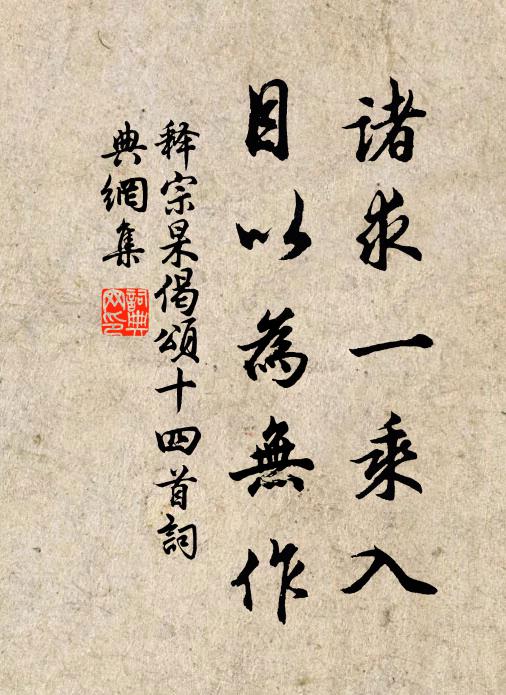 諸求一乘入
目以為無作
释宗杲偈頌十四首詞
典網集
詞典
网印